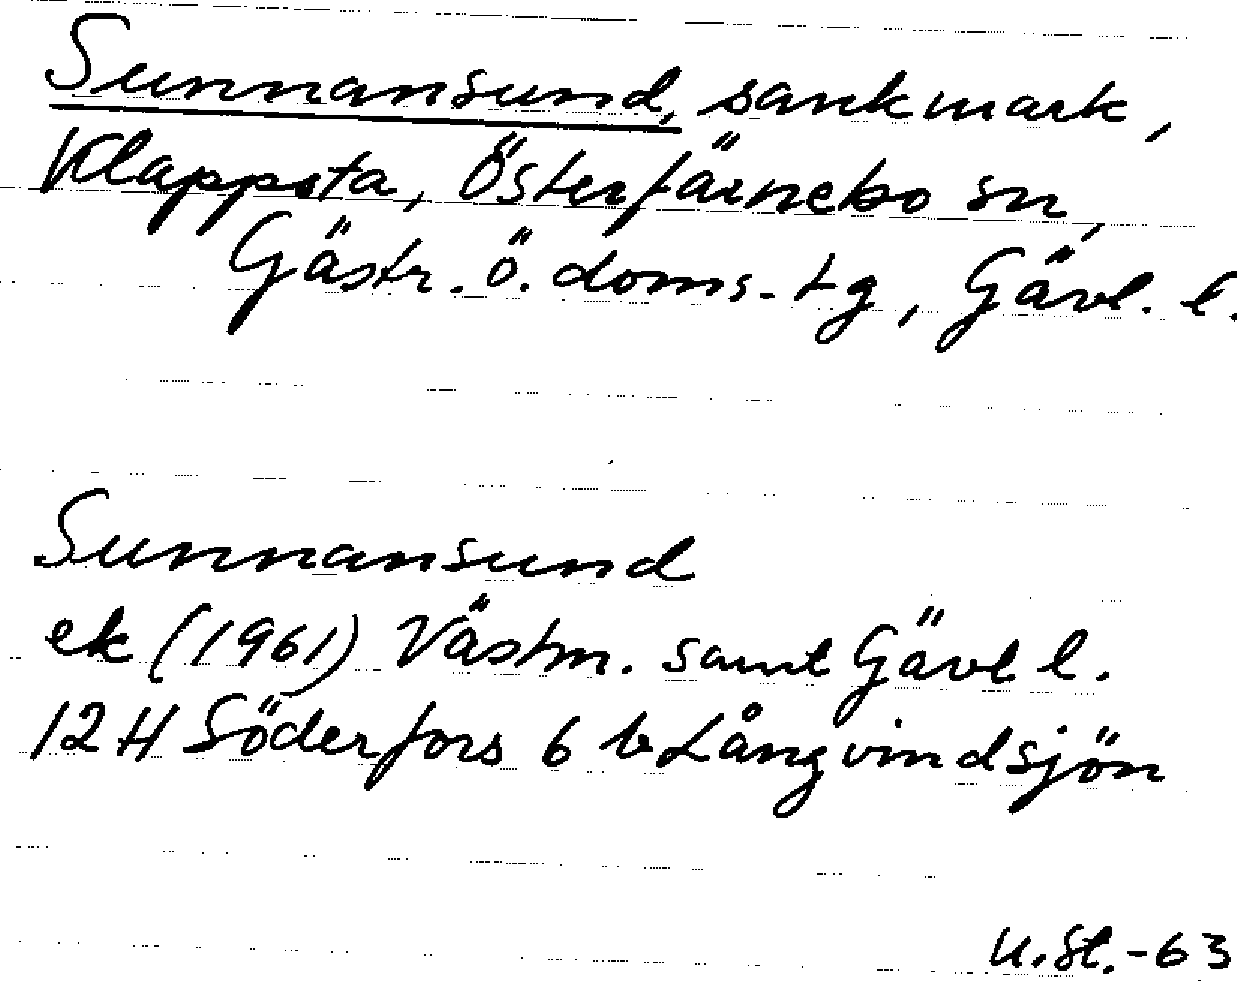 Sunnansund, sankmark,
Klappsta, Österfärnebo sn,
Gästr. ö. doms. tg, Gävl. l.
Sunnansund
ek (1961) Västm. samt Gävl l.
12 H Söderfors 6 b Långvindsjön
U. St. -63